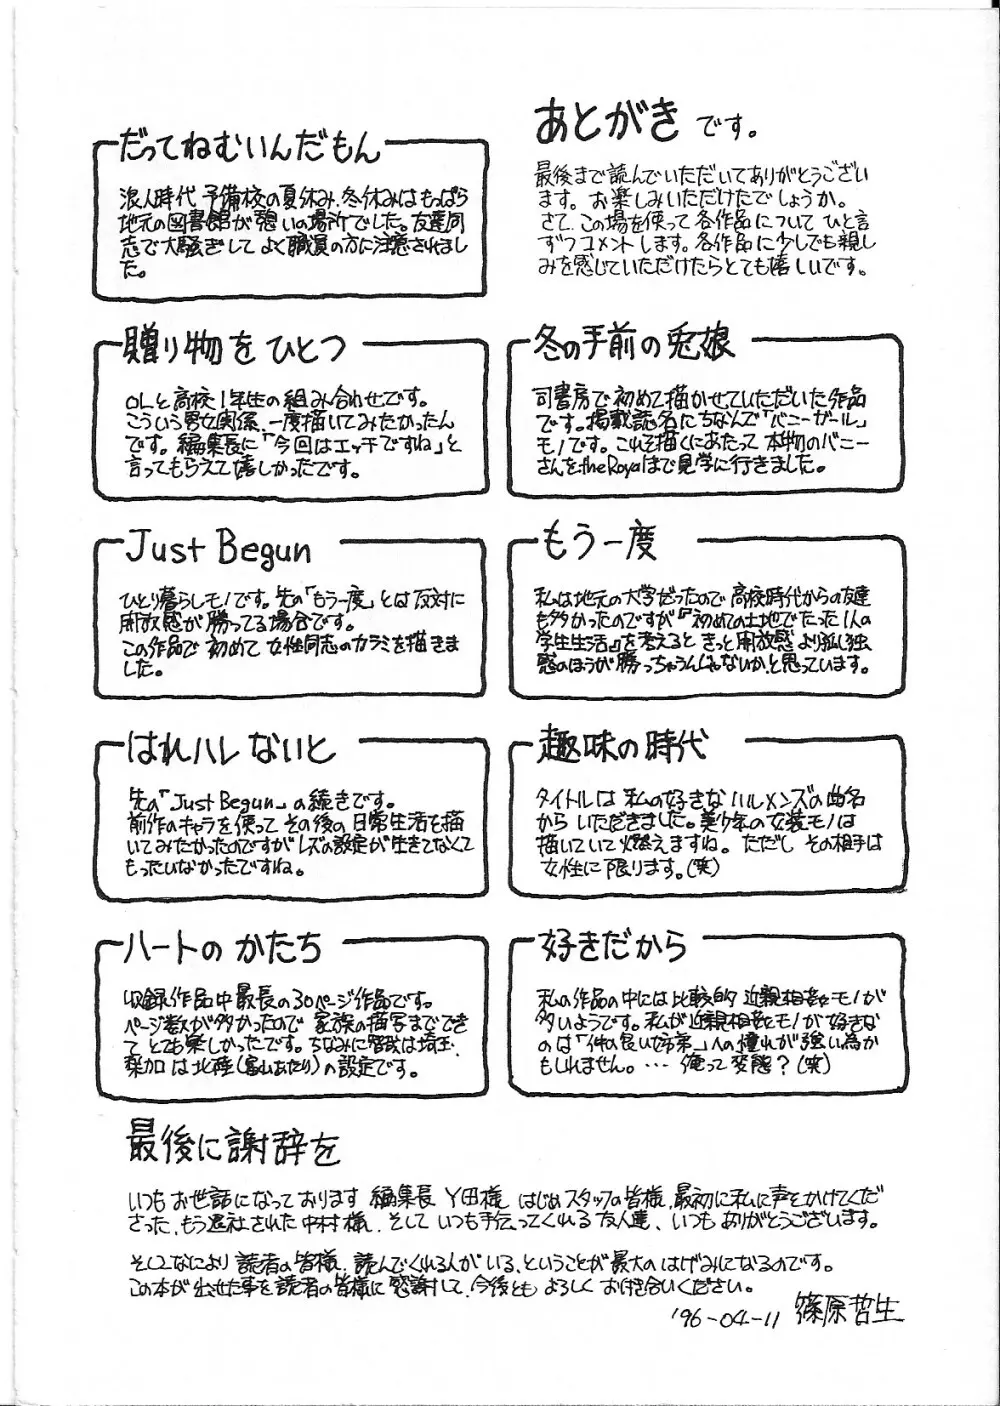 あとがき です。
最後まで読んでいただいてありがとうござい
ます。お楽しみいただけたでしょうか。
さて、この場を使って各作品について ひと言
ずつコメントします。各作品に少しでも親し
みを感じていただけたらとても嬉しいです。
冬の手前の兎娘
司書房で初めて描かせていただいた作品
です。掲載誌名にちなんで「バニーガール」
モノです。これを描くにあたって本物のバニー
さんをthe Royalまで見学に行きました。
もう一度
私は地元の大学だったので高校時代からの友達
も多かったのですが『初めての土地でたった1人の
学生生活』を考えると きっと開放感より孤独
感のほうが勝っちゃうんじゃないか、と思っています。
趣味の時代
タイトルは 私の好きな ハルメンズの曲名
から いただきました。美少年の女装モノは
描いていて燃えますね。ただし その相手は
女性に限ります。(笑)
好きだから
私の作品の中には比較的 近親相姦モノが
多いようです。私が近親相姦モノが好きな
のは「仲の良い姉弟」への憧れが強い為か
もしれません。… 俺って変態?(笑)
だってねむいんだもん
浪人時代 予備校の夏休み、冬休みはもっぱら
地元の図書館が憩いの場所でした。友達同
志で大騒ぎして よく職員の方に注意されまし
た。
贈り物をひとつ
OLと高校1年生の組み合わせです。
こういう男女関係、一度描いてみたかったん
です。編集長に「今回はエッチですね」と
言ってもらえて嬉しかったです。
Just Begun
ひとり暮らしモノです。先の「もう一度」とは反対に
開放感が勝ってる場合です。
この作品で初めて 女性同志のカラミを描きま
した。
はれハレないと
先の「Just Begun」の続きです。
前作のキャラを使って その後の日常生活を描
いてみたかったのですがレズの設定が生きてなくて
もったいなかったですね。
ハートのかたち
収録作品中最長の30ページ作品です。
ページ数が多かったので 家族の描写までできて
て とても楽しかったです。ちなみに 舞台は埼玉、
梨加は北陸(富山あたり)の設定です。
最後に謝辞を
いつもお世話になっております 編集長 Y田様 はじめスタッフの皆様、最初に私に声をかけてくだ
さった、もう退社された中村様、そして いつも手伝ってくれる友人達、いつもありがとうございます。
そしてなにより読者の皆様、読んでくれる人がいる、ということが最大のはげみになるのです。
この本が出せた事を読者の皆様に感謝して、今後とも よろしくお付き合いください。
'96-04-11 篠原哲生